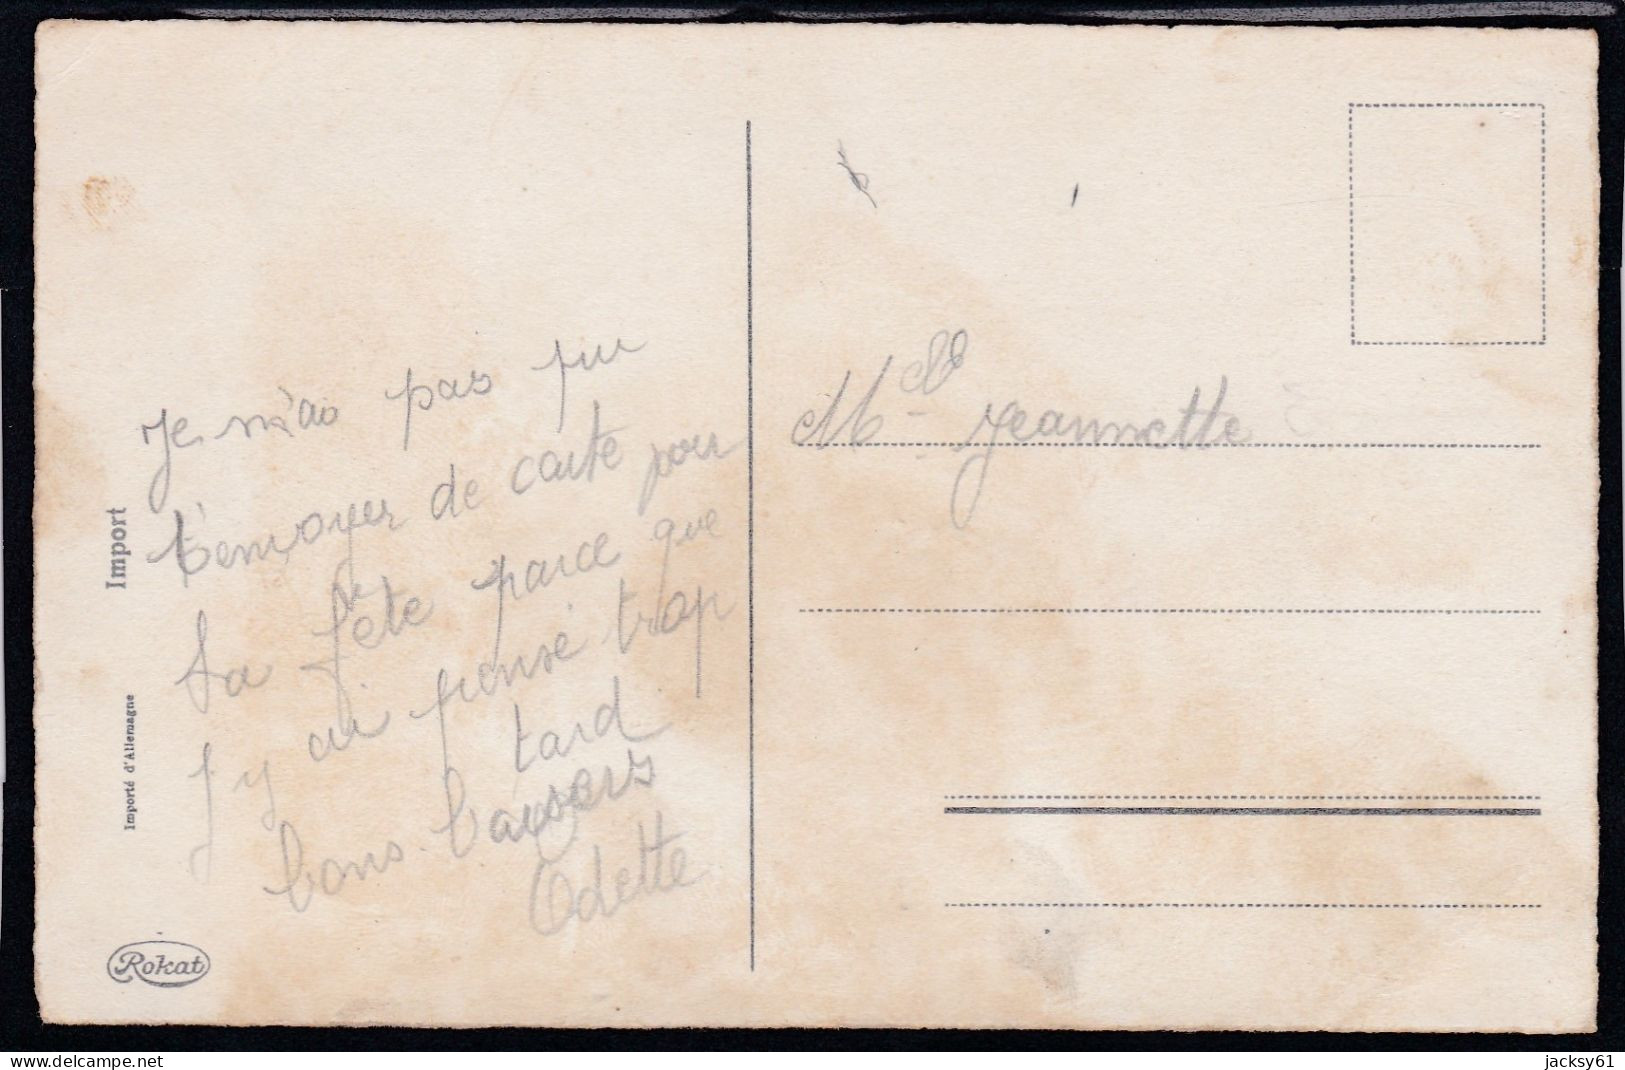 Je n'ai pas pu
t'envoyer de carte pour
ta fête parce que
j'y ai pensé trop
tard
bons baisers
Odette
Mlle Jeannette
Import
Importé d'Allemagne
Rokat
www.delcampe.net
jacksy61